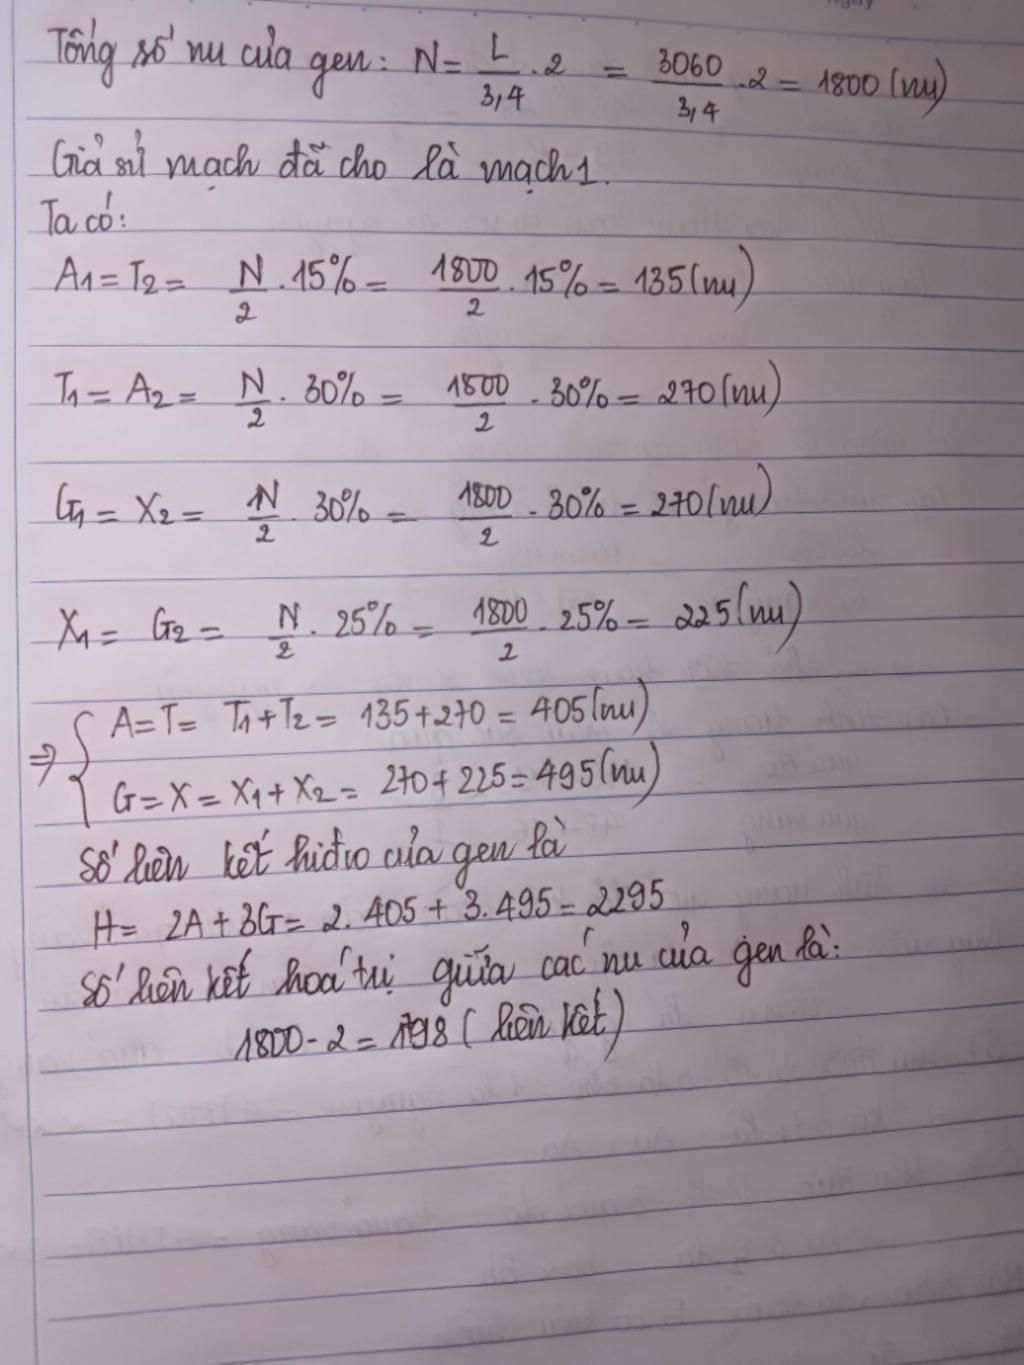 Tổng số nu của gen: N = L/3,4 . 2 = 3060/3,4 . 2 = 1800 (nu)
Giả sử mạch đã cho là mạch 1.
Ta có:
A1 = T2 = N/2 . 15% = 1800/2 . 15% = 135 (nu)
T1 = A2 = N/2 . 30% = 1800/2 . 30% = 270 (nu)
G1 = X2 = N/2 . 30% = 1800/2 . 30% = 270 (nu)
X1 = G2 = N/2 . 25% = 1800/2 . 25% = 225 (nu)
=> { A = T = T1 + T2 = 135 + 270 = 405 (nu)
G = X = X1 + X2 = 270 + 225 = 495 (nu)
Số liên kết hiđro của gen là
H = 2A + 3G = 2. 405 + 3. 495 = 2295
Số liên kết hoá trị giữa các nu của gen là:
1800 - 2 = 1798 ( liên kết)